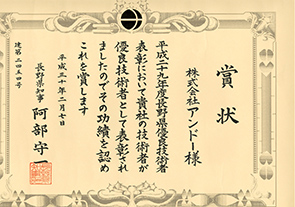 賞状
株式会社アンドー様
平成二十九年度長野県優良技術者
表彰において貴社の技術者が
優良技術者として表彰され
ましたのでその功績を認め
これを賞します
平成三十年二月七日
長野県知事 阿部守一
建第二四五四号